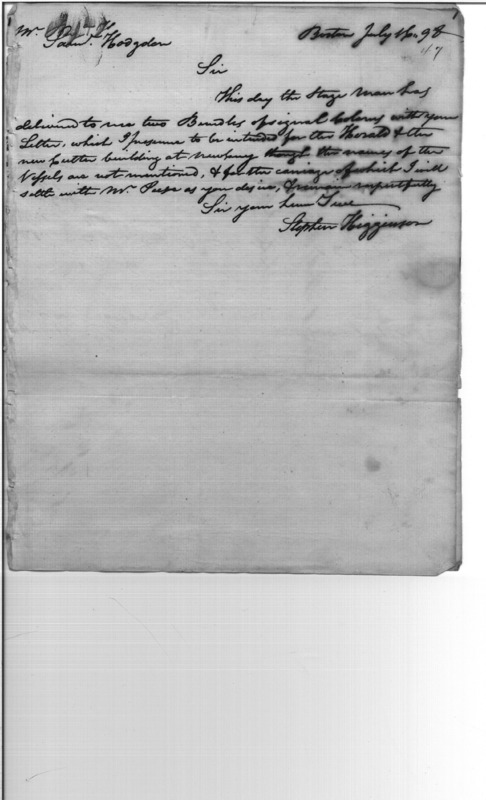 Mr. Saml. Hodgdon
Boston July 16. 98
47
Sir
This day the Stage Man has
delivered to me two Bundles of signal Colours with your
Letter, which I presume to be intended for the Herald & the
new Cutter building at Newbury though the names of the
Vessels are not mentioned, & for the carriage of which I will
settle with Mr. Peirse as you desire, & remain respectfully
Sir your hum Serv
Stephen Higginson